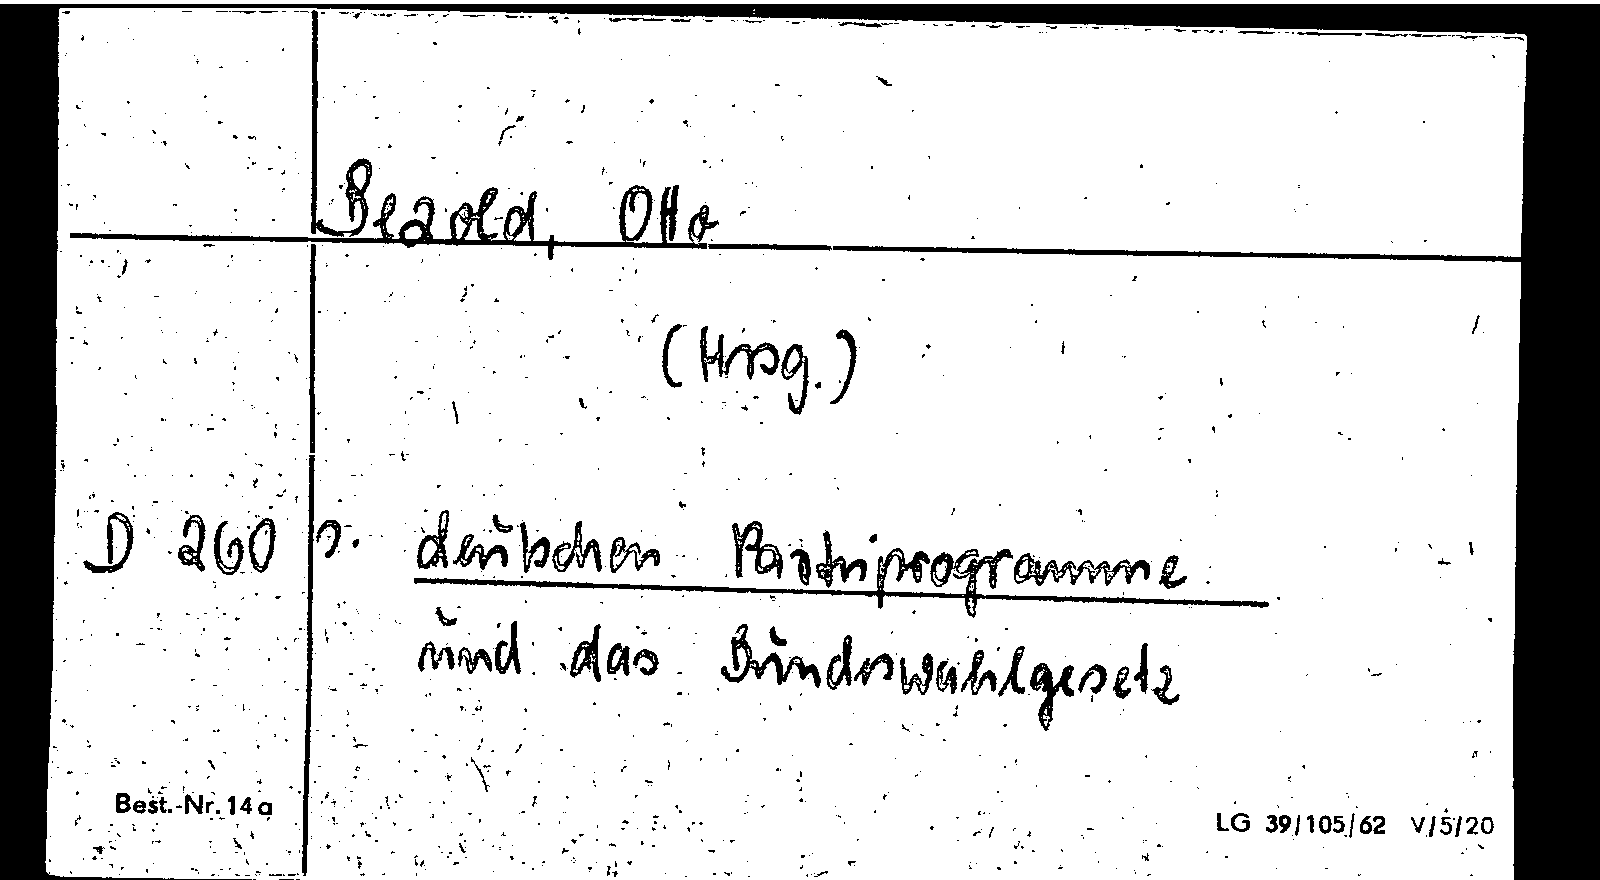 Bezold, Otto
(Hrsg.)
D 260 s. deutschen Parteiprogramme
und das Bundeswahlgesetz
Best.-Nr. 14a
LG 39/105/62 V/5/20